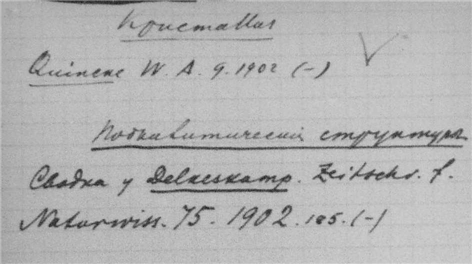 Кристаллы
Quincke W. A. 9. 1902 (-)
структуры
Сводка у Delkeskamp. Zeitschr. f.
Naturwiss. 75. 1902. 185. (-)